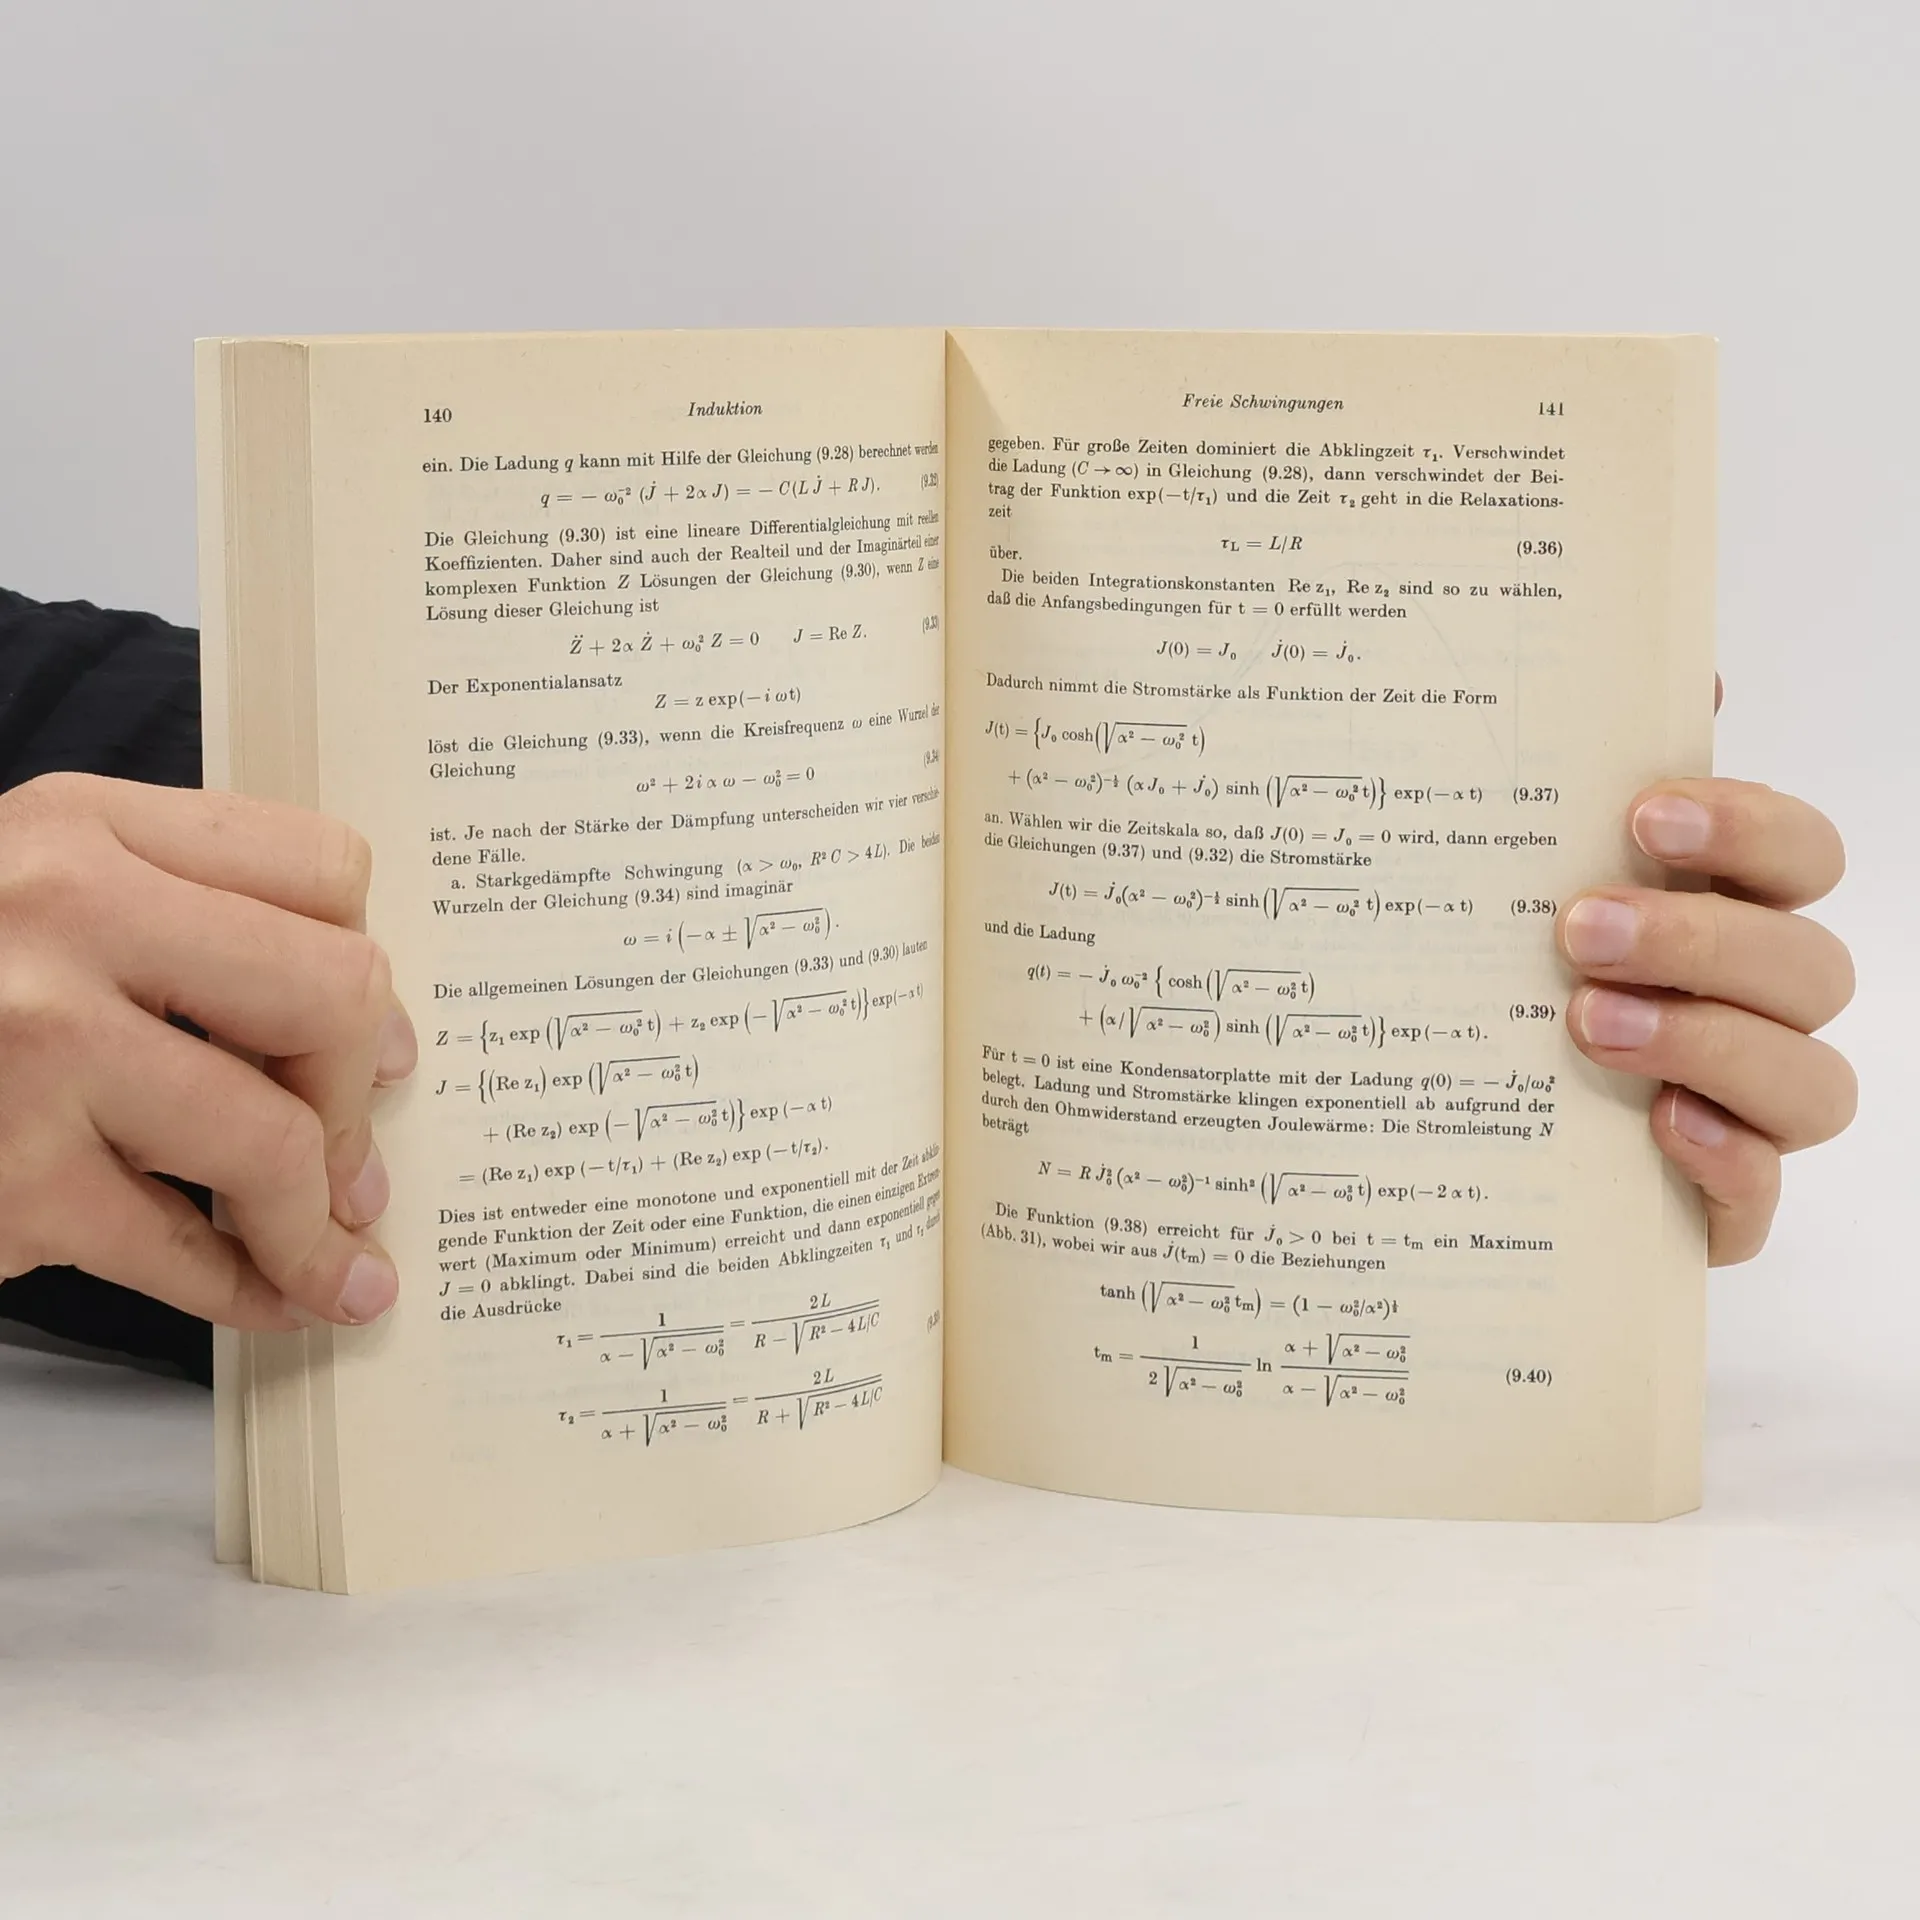 140 Induktion
ein. Die Ladung q kann mit Hilfe der Gleichung (9.28) berechnet werden
q = − ω₀⁻² (J̇ + 2α J) = − C(L J̇ + R J). (9.32)
Die Gleichung (9.30) ist eine lineare Differentialgleichung mit reellen
Koeffizienten. Daher sind auch der Realteil und der Imaginärteil einer
komplexen Funktion Z Lösungen der Gleichung (9.30), wenn Z eine
Lösung dieser Gleichung ist
Z̈ + 2α Ż + ω₀² Z = 0 J = Re Z. (9.33)
Der Exponentialansatz
Z = z exp(− i ωt)
löst die Gleichung (9.33), wenn die Kreisfrequenz ω eine Wurzel der
Gleichung
ω² + 2 i α ω − ω₀² = 0 (9.34)
ist. Je nach der Stärke der Dämpfung unterscheiden wir vier verschie-
dene Fälle.
a. Starkgedämpfte Schwingung (α > ω₀, R² C > 4 L). Die beiden
Wurzeln der Gleichung (9.34) sind imaginär
ω = i (−α ± √(α² − ω₀²)).
Die allgemeinen Lösungen der Gleichungen (9.33) und (9.30) lauten
Z = {z₁ exp (√(α² − ω₀²) t) + z₂ exp (−√(α² − ω₀²) t)} exp(−α t)
J = {(Re z₁) exp (√(α² − ω₀²) t)
+ (Re z₂) exp (−√(α² − ω₀²) t)} exp (−α t)
= (Re z₁) exp (−t/τ₁) + (Re z₂) exp (−t/τ₂).
Dies ist entweder eine monotone und exponentiell mit der Zeit abklin-
gende Funktion der Zeit oder eine Funktion, die einen einzigen Extrem-
wert (Maximum oder Minimum) erreicht und dann exponentiell gegen
J = 0 abklingt. Dabei sind die beiden Abklingzeiten τ₁ und τ₂ durch
die Ausdrücke
τ₁ = 1/(α − √(α² − ω₀²)) = 2L/(R − √(R² − 4L/C))
τ₂ = 1/(α + √(α² − ω₀²)) = 2L/(R + √(R² − 4L/C))
Freie Schwingungen 141
gegeben. Für große Zeiten dominiert die Abklingzeit τ₁. Verschwindet
die Ladung (C → ∞) in Gleichung (9.28), dann verschwindet der Bei-
trag der Funktion exp(−t/τ₁) und die Zeit τ₂ geht in die Relaxations-
zeit
τ_L = L/R (9.36)
über.
Die beiden Integrationskonstanten Re z₁, Re z₂ sind so zu wählen,
daß die Anfangsbedingungen für t = 0 erfüllt werden
J(0) = J₀ J̇(0) = J̇₀.
Dadurch nimmt die Stromstärke als Funktion der Zeit die Form
J(t) = {J₀ cosh(√(α² − ω₀²) t)
+ (α² − ω₀²)^(−½) (α J₀ + J̇₀) sinh (√(α² − ω₀²) t)} exp(−α t) (9.37)
an. Wählen wir die Zeitskala so, daß J(0) = J₀ = 0 wird, dann ergeben
die Gleichungen (9.37) und (9.32) die Stromstärke
J(t) = J̇₀(α² − ω₀²)^(−½) sinh (√(α² − ω₀²) t) exp(−α t) (9.38)
und die Ladung
q(t) = − J̇₀ ω₀⁻² { cosh (√(α² − ω₀²) t)
+ (α/√(α² − ω₀²)) sinh (√(α² − ω₀²) t)} exp(−α t). (9.39)
Für t = 0 ist eine Kondensatorplatte mit der Ladung q(0) = − J̇₀/ω₀²
belegt. Ladung und Stromstärke klingen exponentiell ab aufgrund der
durch den Ohmwiderstand erzeugten Joulewärme: Die Stromleistung N
beträgt
N = R J̇₀² (α² − ω₀²)⁻¹ sinh² (√(α² − ω₀²) t) exp(− 2 α t).
Die Funktion (9.38) erreicht für J̇₀ > 0 bei t = t_m ein Maximum
(Abb. 31), wobei wir aus J̇(t_m) = 0 die Beziehungen
tanh (√(α² − ω₀²) t_m) = (1 − ω₀²/α²)^½
t_m = 1/(2 √(α² − ω₀²)) ln (α + √(α² − ω₀²))/(α − √(α² − ω₀²)) (9.40)